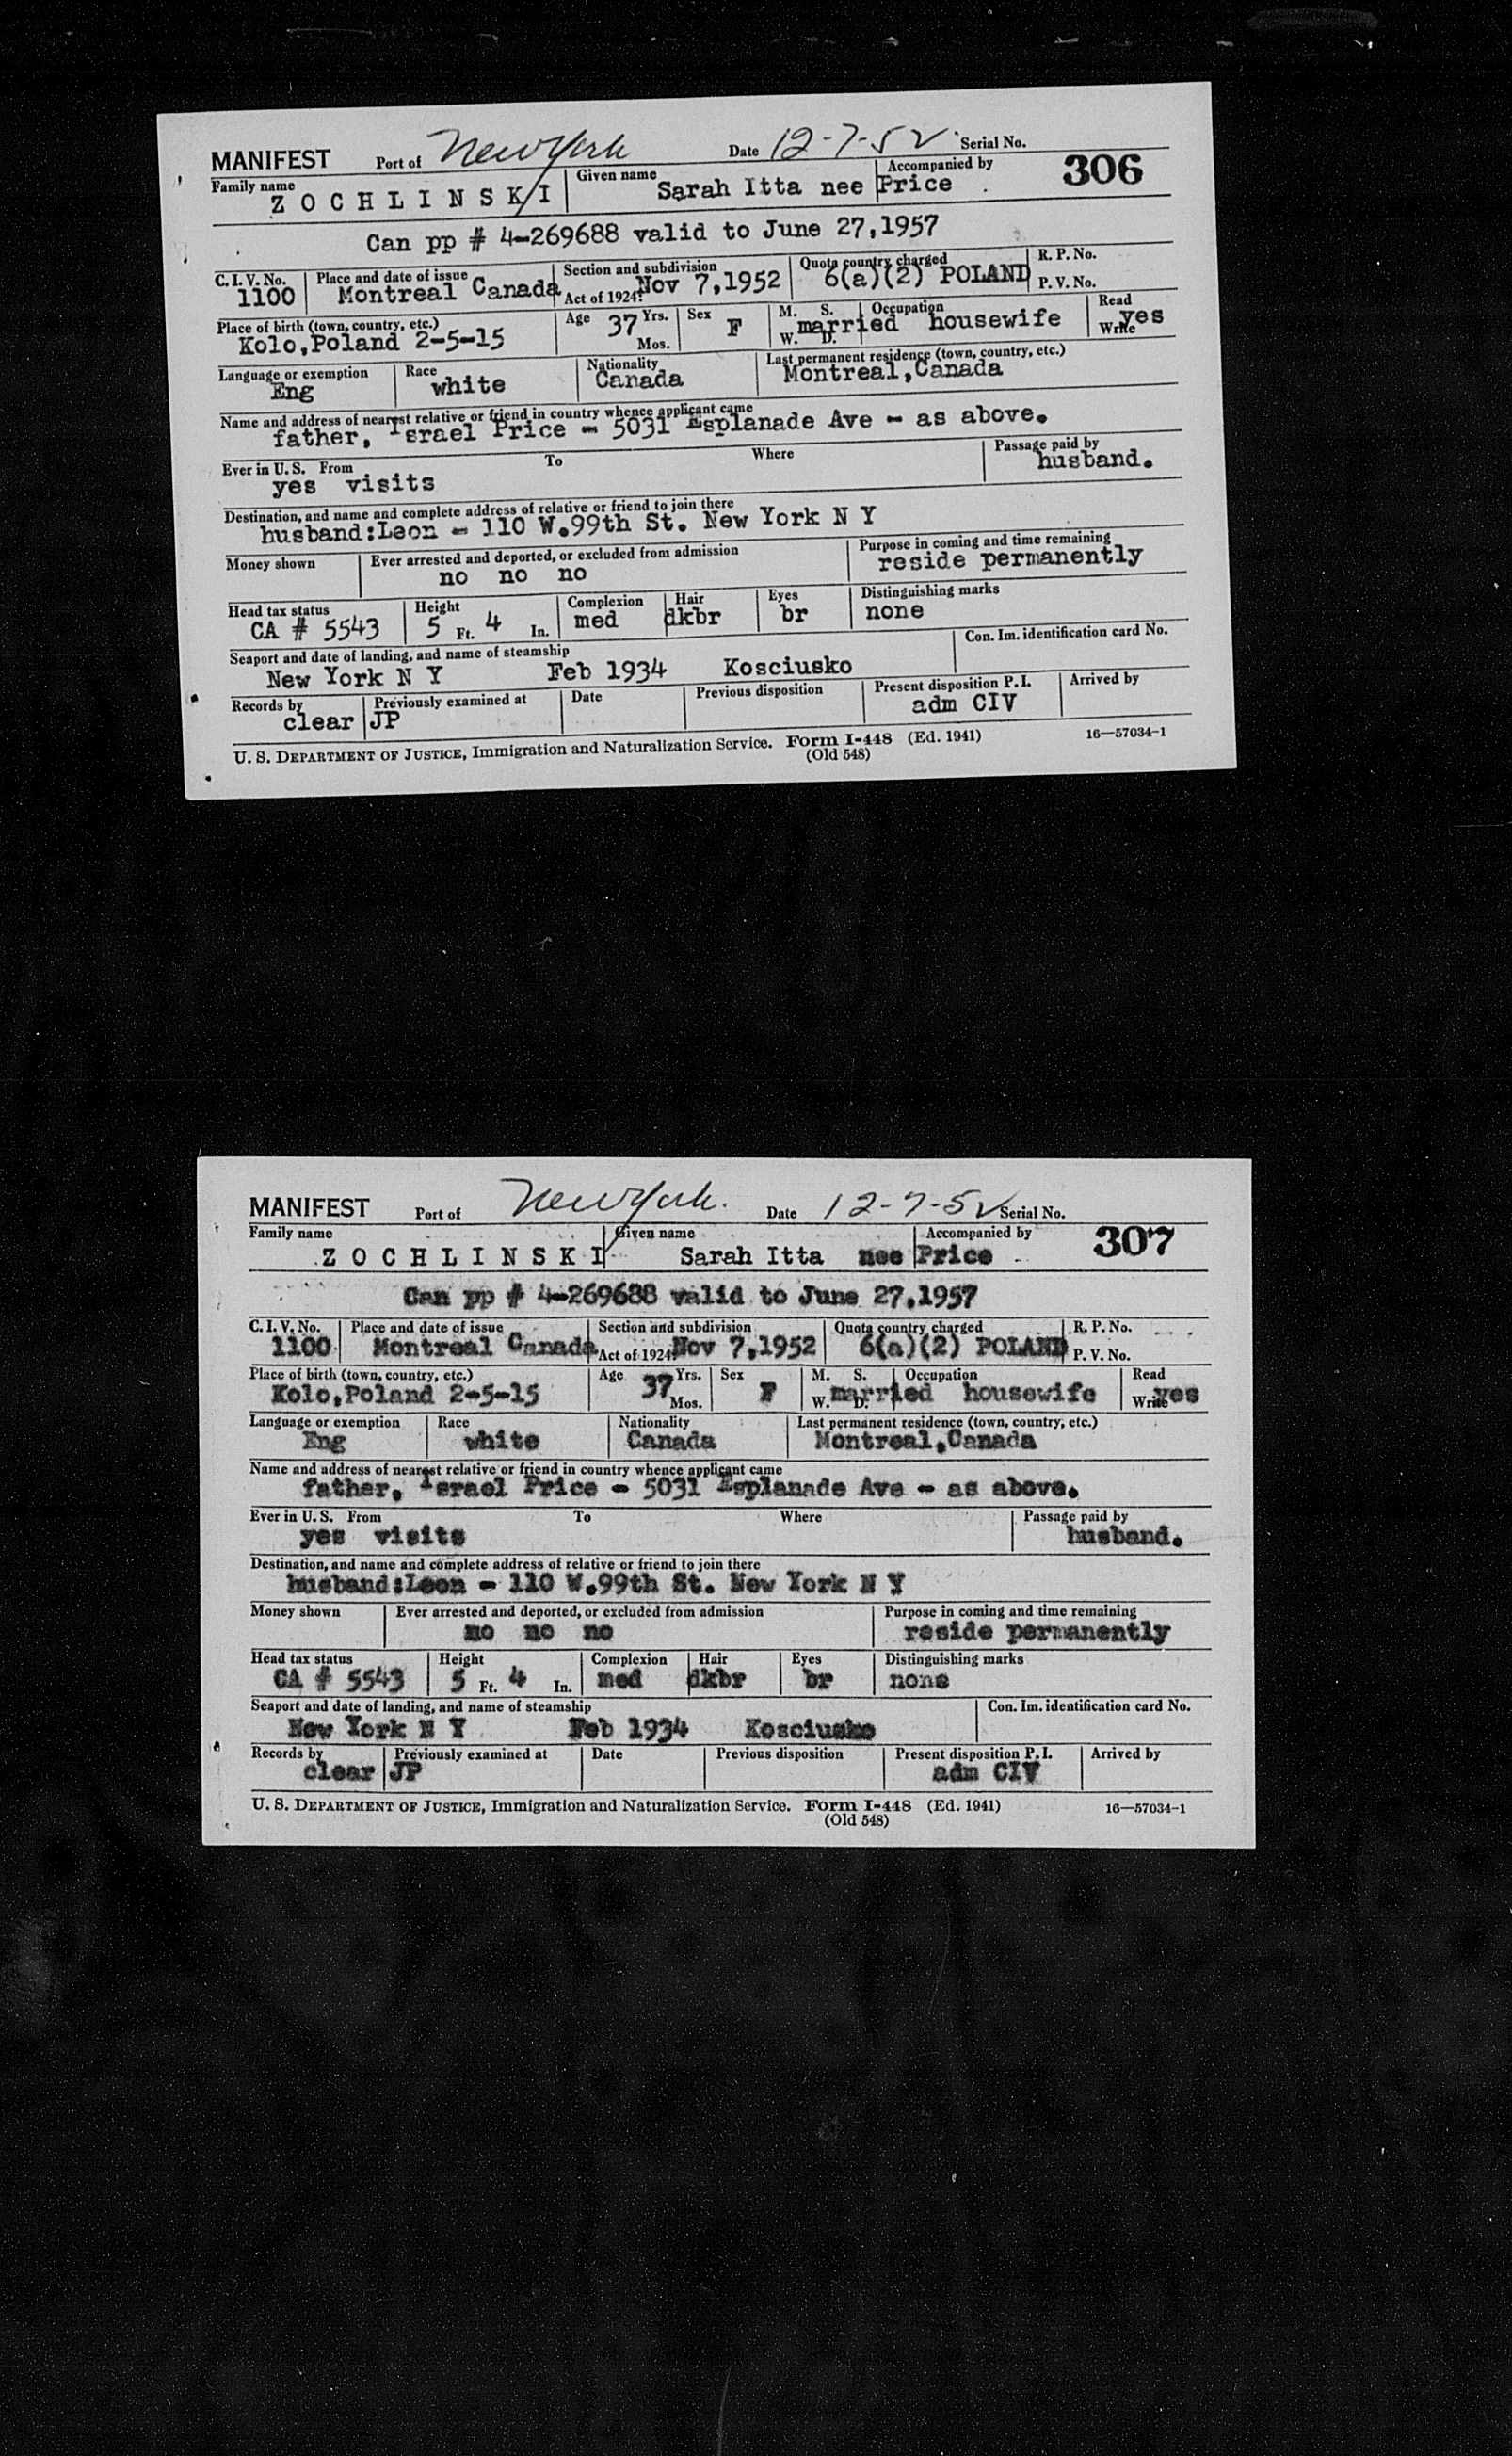 MANIFEST Port of New York Date 12-7-52 Serial No.
Family name Given name Accompanied by 306
ZOCHLINSKI Sarah Itta nee Price
Can pp # 4-269688 valid to June 27,1957
C. I. V. No. Place and date of issue Section and subdivision Quota country charged R. P. No.
1100 Montreal Canada Act of 1924: Nov 7,1952 6(a)(2) POLAND P. V. No.
Place of birth (town, country, etc.) Age Yrs. Sex M. S. Occupation Read
Kolo,Poland 2-5-15 37 Mos. F W. D. married housewife Write yes
Language or exemption Race Nationality Last permanent residence (town, country, etc.)
Eng white Canada Montreal,Canada
Name and address of nearest relative or friend in country whence applicant came
father, Israel Price - 5031 Esplanade Ave - as above.
Ever in U. S. From To Where Passage paid by
yes visits husband.
Destination, and name and complete address of relative or friend to join there
husband:Leon - 110 W.99th St. New York N Y
Money shown Ever arrested and deported, or excluded from admission Purpose in coming and time remaining
no no no reside permanently
Head tax status Height Complexion Hair Eyes Distinguishing marks
CA # 5543 5 Ft. 4 In. med dkbr br none
Seaport and date of landing, and name of steamship Con. Im. identification card No.
New York N Y Feb 1934 Kosciusko
Records by Previously examined at Date Previous disposition Present disposition P. I. Arrived by
clear JP adm CIV
U. S. DEPARTMENT OF JUSTICE, Immigration and Naturalization Service. Form I-448 (Ed. 1941) 16—57034-1
(Old 548)
MANIFEST Port of New York. Date 12-7-52 Serial No.
Family name Given name Accompanied by 307
ZOCHLINSKI Sarah Itta nee Price
Can pp # 4-269688 valid to June 27,1957
C. I. V. No. Place and date of issue Section and subdivision Quota country charged R. P. No.
1100 Montreal Canada Act of 1924: Nov 7,1952 6(a)(2) POLAND P. V. No.
Place of birth (town, country, etc.) Age Yrs. Sex M. S. Occupation Read
Kolo,Poland 2-5-15 37 Mos. F W. D. married housewife Write yes
Language or exemption Race Nationality Last permanent residence (town, country, etc.)
Eng white Canada Montreal,Canada
Name and address of nearest relative or friend in country whence applicant came
father, Israel Price - 5031 Esplanade Ave - as above.
Ever in U. S. From To Where Passage paid by
yes visits husband.
Destination, and name and complete address of relative or friend to join there
husband:Leon - 110 W.99th St. New York N Y
Money shown Ever arrested and deported, or excluded from admission Purpose in coming and time remaining
no no no reside permanently
Head tax status Height Complexion Hair Eyes Distinguishing marks
CA # 5543 5 Ft. 4 In. med dkbr br none
Seaport and date of landing, and name of steamship Con. Im. identification card No.
New York N Y Feb 1934 Kosciusko
Records by Previously examined at Date Previous disposition Present disposition P. I. Arrived by
clear JP adm CIV
U. S. DEPARTMENT OF JUSTICE, Immigration and Naturalization Service. Form I-448 (Ed. 1941) 16—57034-1
(Old 548)